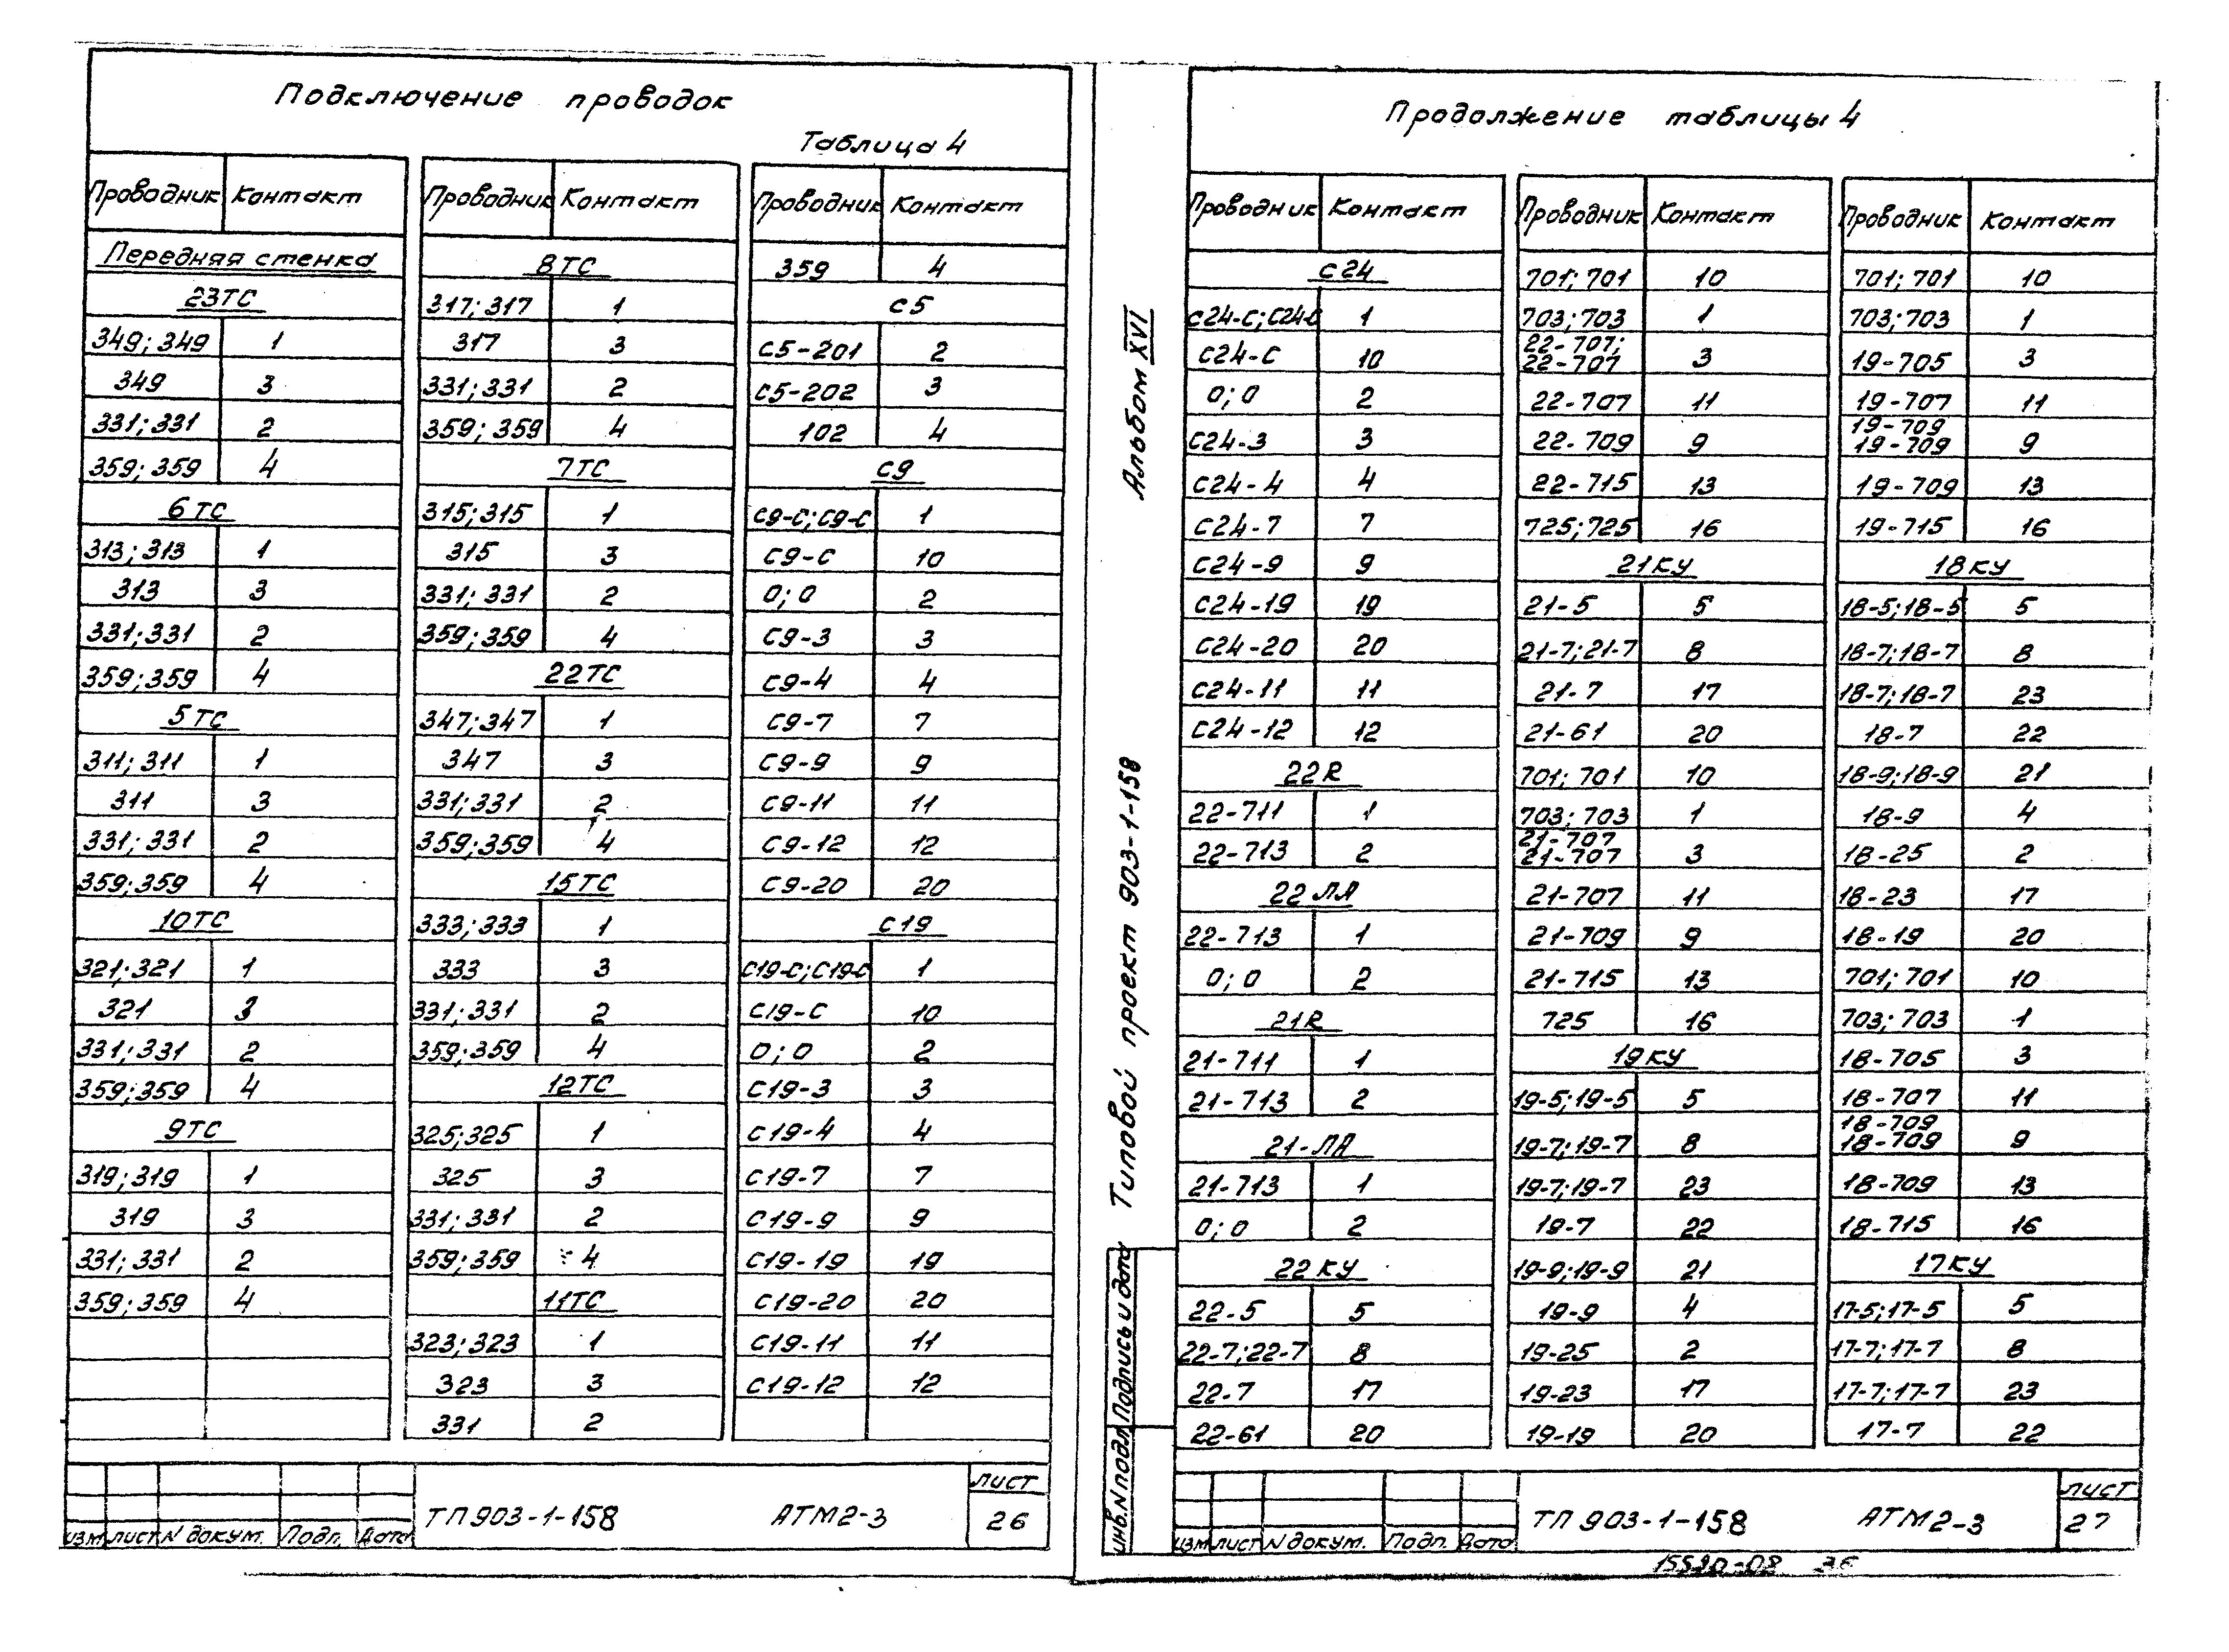 Подключение проводок
Таблица 4
Проводник Контакт
Передняя стенка
23ТС
349; 349 1
349 3
331; 331 2
359; 359 4
6ТС
313; 313 1
313 3
331; 331 2
359; 359 4
5ТС
311; 311 1
311 3
331; 331 2
359; 359 4
10ТС
321; 321 1
321 3
331; 331 2
359; 359 4
9ТС
319; 319 1
319 3
331; 331 2
359; 359 4
Проводник Контакт
8ТС
317; 317 1
317 3
331; 331 2
359; 359 4
7ТС
315; 315 1
315 3
331; 331 2
359; 359 4
22ТС
347; 347 1
347 3
331; 331 2
359; 359 4
15ТС
333; 333 1
333 3
331; 331 2
359; 359 4
12ТС
325; 325 1
325 3
331; 331 2
359; 359 4
11ТС
323; 323 1
323 3
331 2
Проводник Контакт
359 4
С5
С5-201 2
С5-202 3
102 4
С9
С9-С; С9-С 1
С9-С 10
0; 0 2
С9-3 3
С9-4 4
С9-7 7
С9-9 9
С9-11 11
С9-12 12
С9-20 20
С19
С19-С; С19-С 1
С19-С 10
0; 0 2
С19-3 3
С19-4 4
С19-7 7
С19-9 9
С19-19 19
С19-20 20
С19-11 11
С19-12 12
изм лист N докум. Подп. Дата
ТП 903-1-158 АТМ2-3
лист
26
Альбом XVI
Типовой проект 903-1-158
Подпись и дата
инв.N подл.
Продолжение таблицы 4
Проводник Контакт
С24
С24-С; С24-С 1
С24-С 10
0; 0 2
С24-3 3
С24-4 4
С24-7 7
С24-9 9
С24-19 19
С24-20 20
С24-11 11
С24-12 12
22R
22-711 1
22-713 2
22ЛА
22-713 1
0; 0 2
21R
21-711 1
21-713 2
21-ЛА
21-713 1
0; 0 2
22КУ
22-5 5
22-7; 22-7 8
22-7 17
22-61 20
Проводник Контакт
701; 701 10
703; 703 1
22-707;
22-707 3
22-707 11
22-709 9
22-715 13
725; 725 16
21КУ
21-5 5
21-7; 21-7 8
21-7 17
21-61 20
701; 701 10
703; 703 1
21-707
21-707 3
21-707 11
21-709 9
21-715 13
725 16
19КУ
19-5; 19-5 5
19-7; 19-7 8
19-7; 19-7 23
19-7 22
19-9; 19-9 21
19-9 4
19-25 2
19-23 17
19-19 20
Проводник Контакт
701; 701 10
703; 703 1
19-705 3
19-707 11
19-709
19-709 9
19-709 13
19-715 16
18КУ
18-5; 18-5 5
18-7; 18-7 8
18-7; 18-7 23
18-7 22
18-9; 18-9 21
18-9 4
18-25 2
18-23 17
18-19 20
701; 701 10
703; 703 1
18-705 3
18-707 11
18-709
18-709 9
18-709 13
18-715 16
17КУ
17-5; 17-5 5
17-7; 17-7 8
17-7; 17-7 23
17-7 22
изм лист N докум. Подп. Дата
ТП 903-1-158 АТМ2-3
лист
27